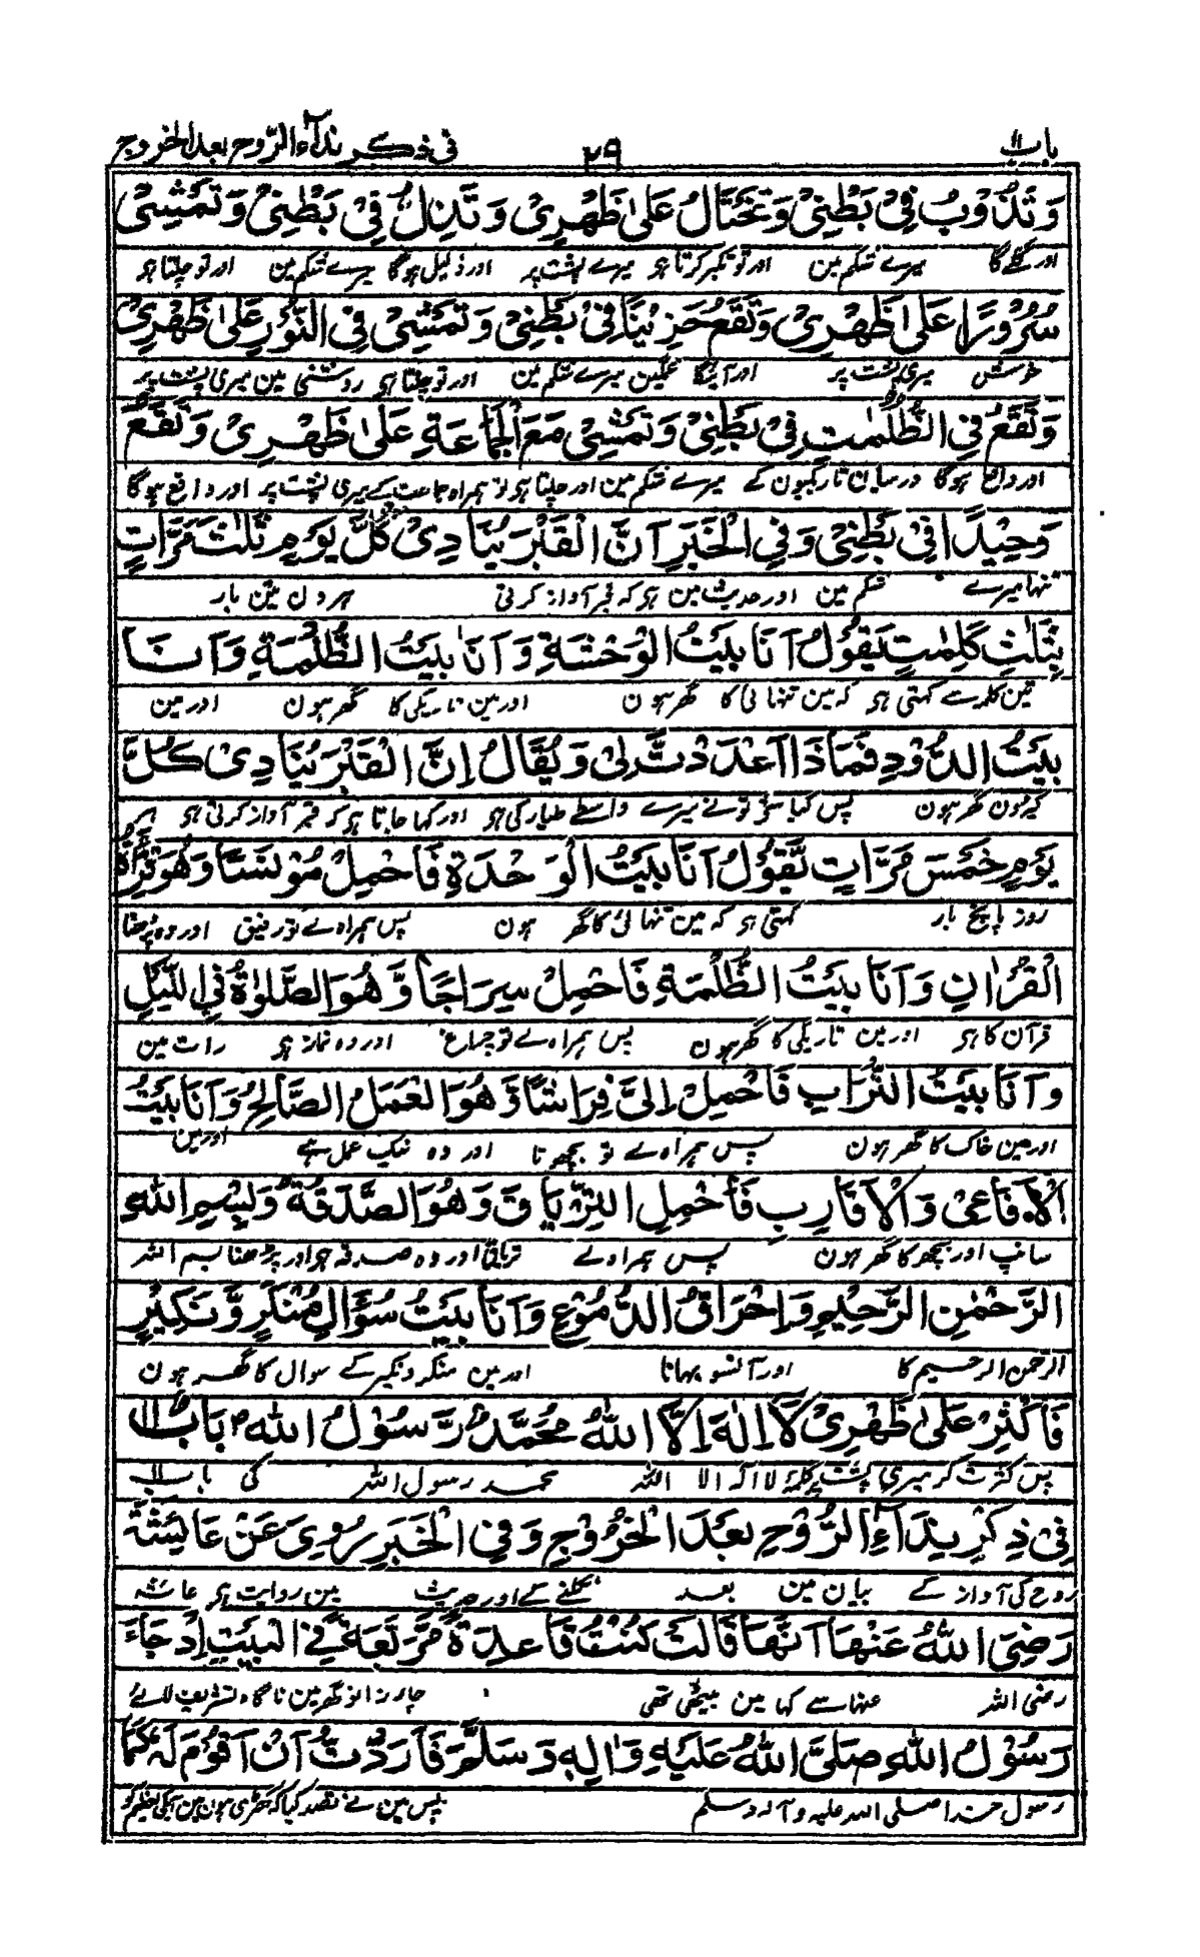 باب ١١ ٢٩ فی ذکر نداء الروح بعد الخروج
وَتَذُوْبُ فِیْ بَطْنِیْ وَتَخْتَالُ عَلیٰ ظَهْرِیْ وَتَذِلُّ فِیْ بَطْنِیْ وَتَمْشِیْ
اور گلے گا میرے شکم مین اور تو تکبر کرتا ہو میرے پشت پر اور ذلیل ہو گا میرے شکم مین اور تو چلتا ہو
سُرُوْرًا عَلیٰ ظَهْرِیْ وَتَقَعُ حَزِیْنًا فِیْ بَطْنِیْ وَتَمْشِیْ فِی النُّوْرِ عَلیٰ ظَهْرِیْ
خوش میری پشت پر اور آئیگا غمگین میرے شکم مین اور تو چلتا ہو روشنی مین میری پشت پر
وَتَقَعُ فِی الظُّلُمٰتِ فِیْ بَطْنِیْ وَتَمْشِیْ مَعَ الْجَمَاعَةِ عَلیٰ ظَهْرِیْ وَتَقَعُ
اور داقع ہو گا درمیان تاریکیون کے میرے شکم مین اور چلتا ہو تو ہمراہ جماعت کے میری پشت پر اور واقع ہو گا
وَحِیْدًا فِیْ بَطْنِیْ وَفِی الْخَبَرِ اَنَّ الْقَبْرَ یُنَادِیْ کُلَّ یَوْمٍ ثَلٰثَ مَرَّاتٍ
تنہا میرے شکم مین اور حدیث مین ہو کہ قبر آواز کرتی ہر دن تین بار
بِثَلٰثِ کَلِمٰتٍ یَقُوْلُ اَنَا بَیْتُ الْوَحْشَةِ وَاَنَا بَیْتُ الظُّلْمَةِ وَاَنَا
تین کلمہ سے کہتی ہو کہ مین تنہائی کا گھر ہون اور مین تاریکی کا گھر ہون اور مین
بَیْتُ الدُّوْدِ فَمَاذَا اَعْدَدْتَّ لِیْ وَیُقَالُ اِنَّ الْقَبْرَ یُنَادِیْ کُلَّ
کیڑون گھر ہون پس کیا تونے میرے واسطے طیار کی ہو اور کہا جاتا ہو کہ قبر آواز کرتی ہو ہر
یَوْمٍ خَمْسَ مَرَّاتٍ یَّقُوْلُ اَنَا بَیْتُ الْوَحْدَةِ فَاحْمِلْ مُوْنِسًا وَهُوَ قِرَاءَةُ
روز پانچ بار کہتی ہو کہ مین تنہائی کا گھر ہون پس ہمراہ لے تو رفیق اور وہ پڑھنا
الْقُرْاٰنِ وَاَنَا بَیْتُ الظُّلْمَةِ فَاحْمِلْ سِرَاجًا وَّهُوَ الصَّلوٰةُ فِی اللَّیْلِ
قرآن کا ہو اور مین تاریکی کا گھر ہون پس ہمراہ لے تو چراغ اور وہ نماز ہو رات مین
وَاَنَا بَیْتُ التُّرَابِ فَاحْمِلْ اِلَیَّ فِرَاشًا وَّهُوَ الْعَمَلُ الصَّالِحُ وَاَنَا بَیْتُ
اور مین خاک کا گھر ہون پس ہمراہ لے تو بچھونا اور وہ نیک عمل ہے اور مین
الْاَفَاعِیْ وَالْاَقَارِبِ فَاحْمِلِ التِّرْیَاقَ وَهُوَ الصَّدَقَةُ وَبِسْمِ اللّٰهِ
سانپ اور بچھو کا گھر ہون پس ہمراہ لے تریاق اور وہ صدقہ ہو اور پڑھنا بسم اللہ
الرَّحْمٰنِ الرَّحِیْمِ وَاِهْرَاقُ الدُّمُوْعِ وَاَنَا بَیْتُ سُؤَالِ مُنْکَرٍ وَّنَکِیْرٍ
الرحمن الرحیم کا اور آنسو بہانا اور مین منکر و نکیر کے سوال کا گھر ہون
فَاَکْثِرْ عَلیٰ ظَهْرِیْ لَا اِلٰهَ اِلَّا اللّٰهُ مُحَمَّدٌ رَّسُوْلُ اللّٰهِ بَابُ ١١
پس کثرت کر میری پشت پر کلمۂ لا الہ الا اللہ محمد رسول اللہ کی باب ١١
فِیْ ذِکْرِ نِدَاءِ الرُّوْحِ بَعْدَ الْخُرُوْجِ وَفِی الْخَبَرِ رُوِیَ عَنْ عَائِشَةَ
روح کی آواز کے بیان مین بعد نکلنے کے اور حدیث مین روایت ہو عائشہ
رَضِیَ اللّٰهُ عَنْهَا اَنَّهَا قَالَتْ کُنْتُ قَاعِدَةً مُّرَبَّعَةً فِی الْبَیْتِ اِذْ جَاءَ
رضی اللہ عنہا سے کہا مین بیٹھی تھی چار زانو گھر مین ناگاہ تشریف لائے
رَسُوْلُ اللّٰهِ صَلَّی اللّٰهُ عَلَیْهِ وَاٰلِهٖ وَسَلَّمَ فَاَرَدْتُ اَنْ اَقُوْمَ لَهٗ کَمَا
رسول خدا صلی اللہ علیہ و آلہ وسلم پس مین نے قصد کیا کہ کھڑی ہون مین آپکی تعظیم کو